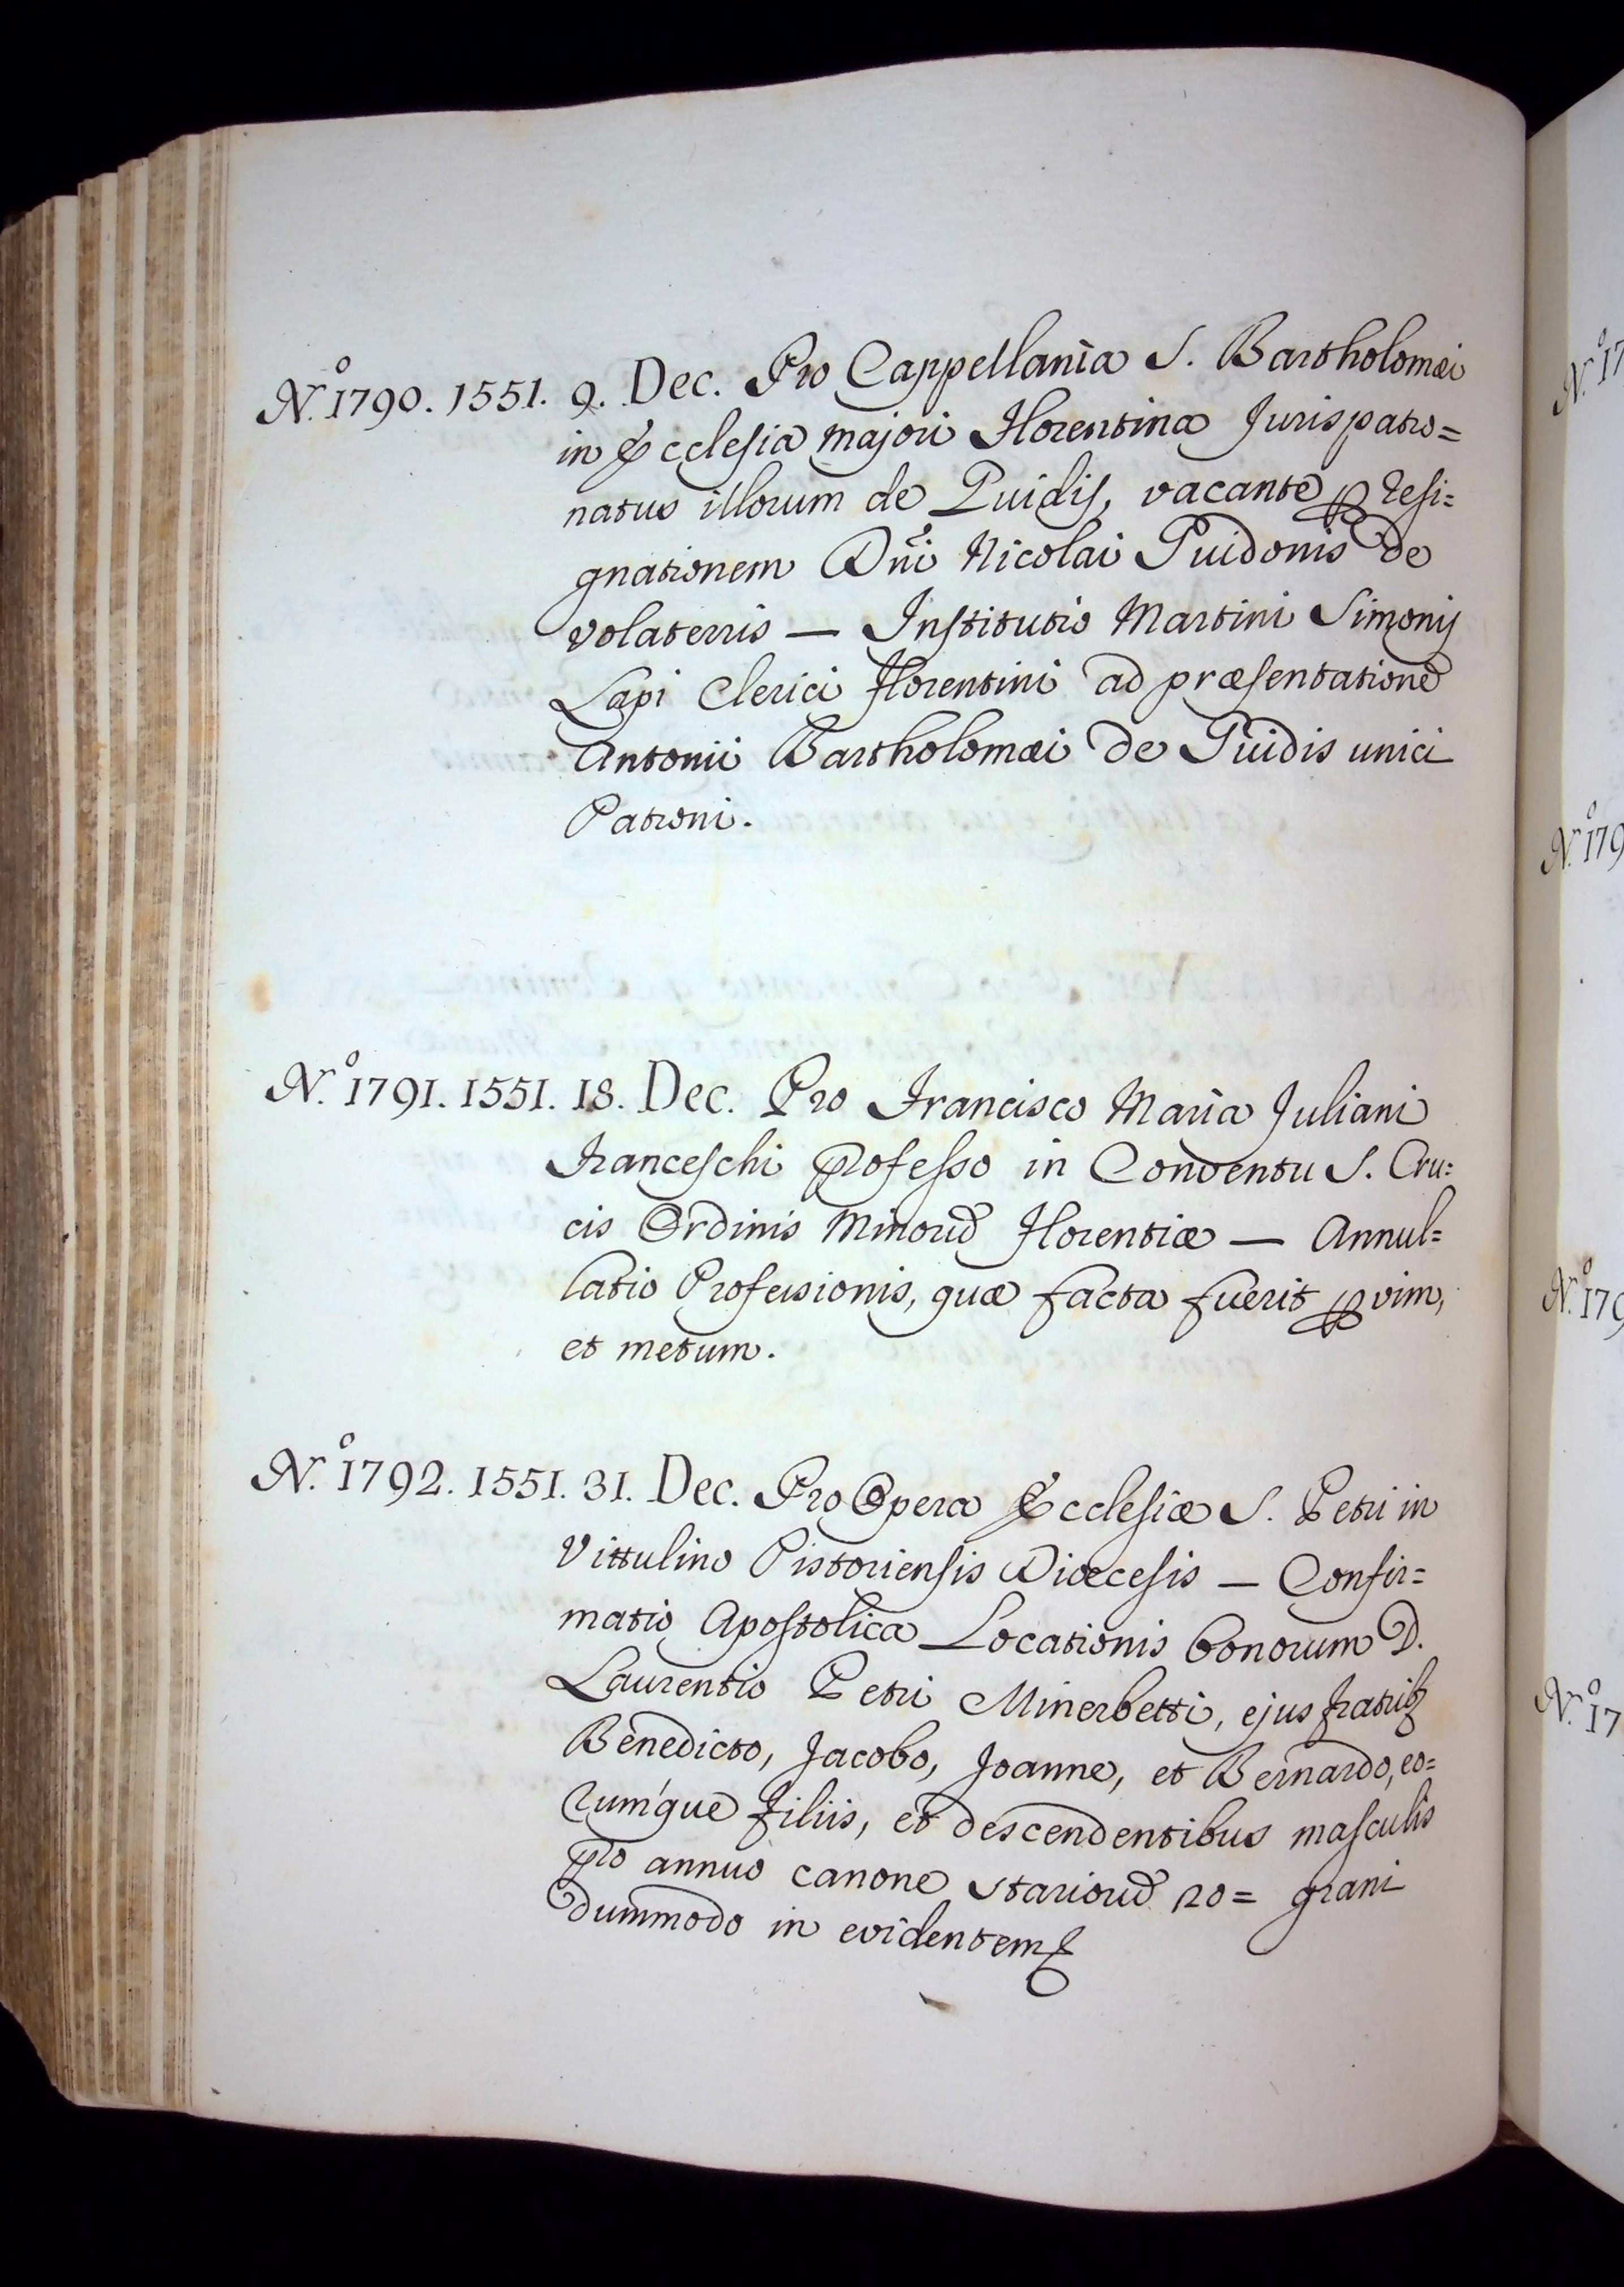 N.º 1790. 1551. 9. Dec. Pro Cappellania S. Bartholomæi
in Ecclesia majori Florentina Jurispatro=
natus illorum de Guidis, vacante ꝑ resi=
gnationem Dñi Nicolai Guidonis de
Volaterris — Institutio Martini Simonis
Lapi Clerici Florentini ad præsentationē
Antonii Bartholomæi de Guidis unici
Patroni.
N.º 1791. 1551. 18. Dec. Pro Francisco Maria Juliani
Franceschi Professo in Conventu S. Cru=
cis Ordinis Minorū Florentiæ — Annul=
latio Professionis, quæ facta fuerit ꝑ vim,
et metum.
N.º 1792. 1551. 31. Dec. Pro Opera Ecclesiæ S. Petri in
Vittulino Pistoriensis Diœcesis — Confir=
matio Apostolica Locationis bonorum D.
Laurentio Petri Minerbetti, ejus fratribȝ
Benedicto, Jacobo, Joanne, et Bernardo, eo=
rumque filiis, et descendentibus masculis
pro annuo canone Stariorū 120= grani
dummodo in evidentem &
N.º 17
N.º 179
N.º 179
N.º 17